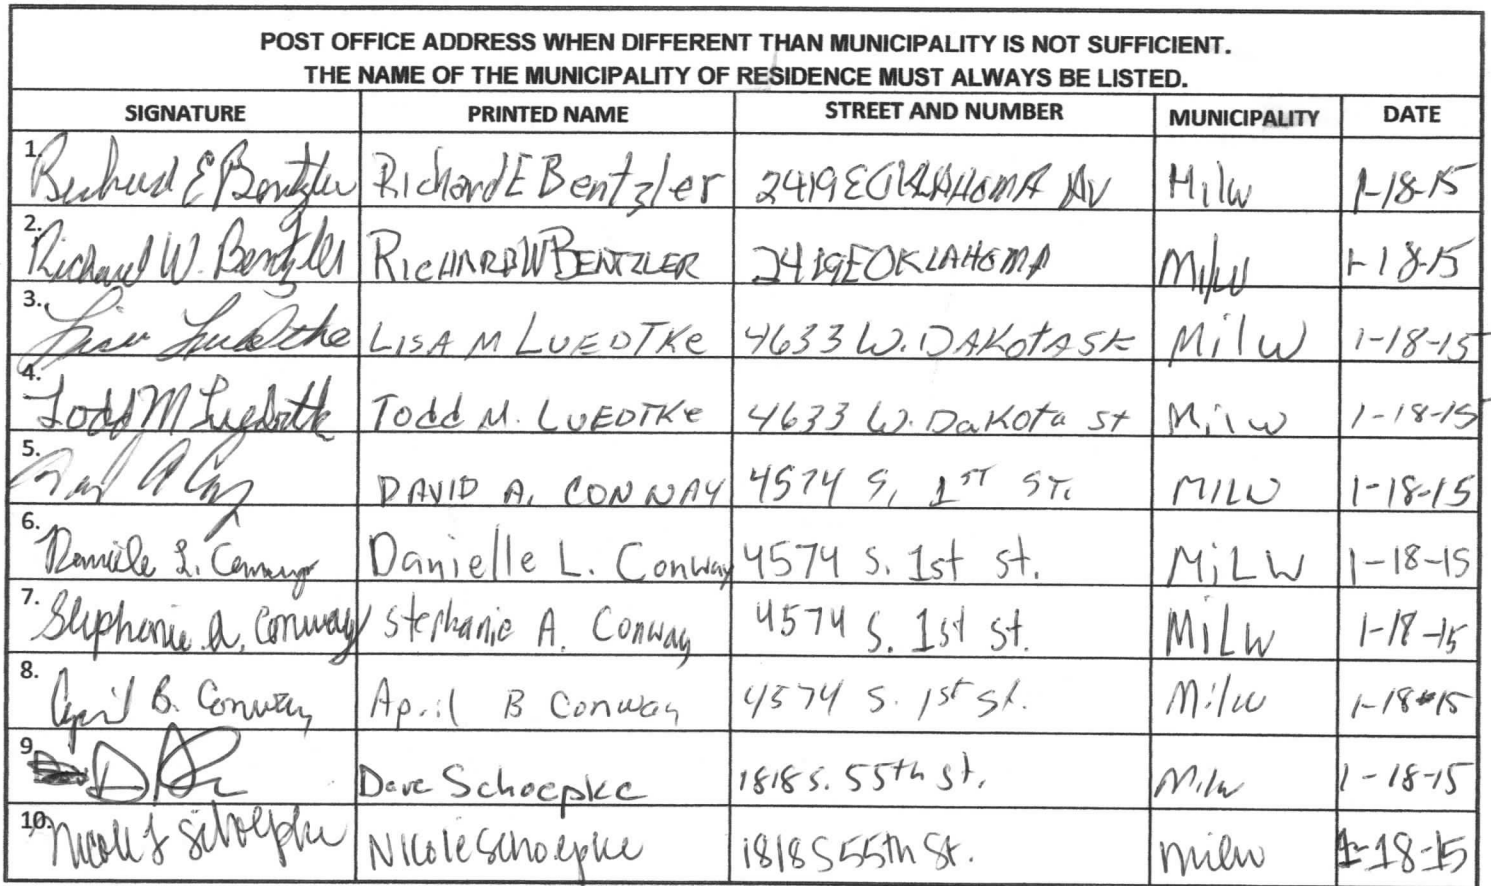 POST OFFICE ADDRESS WHEN DIFFERENT THAN MUNICIPALITY IS NOT SUFFICIENT.
THE NAME OF THE MUNICIPALITY OF RESIDENCE MUST ALWAYS BE LISTED.
SIGNATURE PRINTED NAME STREET AND NUMBER MUNICIPALITY DATE
1. Richard E Bentzler Richard E Bentzler 2419 E OKLAHOMA AV Milw 1-18-15
2. Richard W. Bentzler RICHARD W BENTZLER 2419 E OKLAHOMA Milw 1-18-15
3. Lisa Luedtke LISA M LUEDTKe 4633 W. DAKotA St Milw 1-18-15
4. Todd M Luedtke Todd M. LUEDTKe 4633 W. DaKota St Milw 1-18-15
5. DAVID A. CONWAY 4574 S. 1ST ST. MILW 1-18-15
6. Danielle L. Conway Danielle L. Conway 4574 S. 1st st. MiLW 1-18-15
7. Stephanie A. Conway Stephanie A. Conway 4574 S. 1st st. MiLW 1-18-15
8. April B. Conway April B Conway 4574 S. 1st St. Milw 1-18-15
9. Dave Schoepke 1818 S. 55th St. Milw 1-18-15
10. Nicole J Schoepke Nicole Schoepke 1818 S 55th St. milw 1-18-15